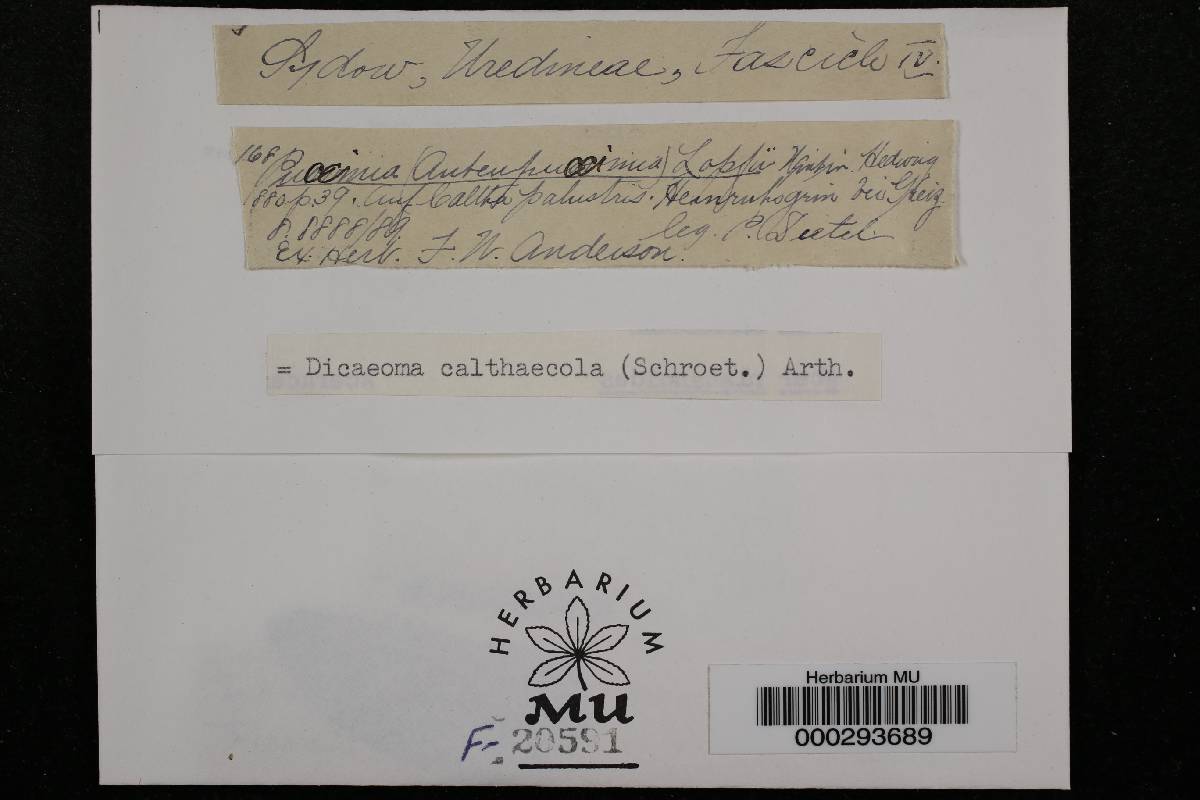 Sydow, Uredineae, Fascicle IV.
168 Puccinia (Auteupuccinia) Zopfii Wint. Hedwig
1880 p. 39. Auf Caltha palustris. bei Greiz
8. 1888/89 leg. P. Dietel.
Ex. Herb. F. W. Anderson.
= Dicaeoma calthaecola (Schroet.) Arth.
HERBARIUM
MU
F- 20591
Herbarium MU
000293689